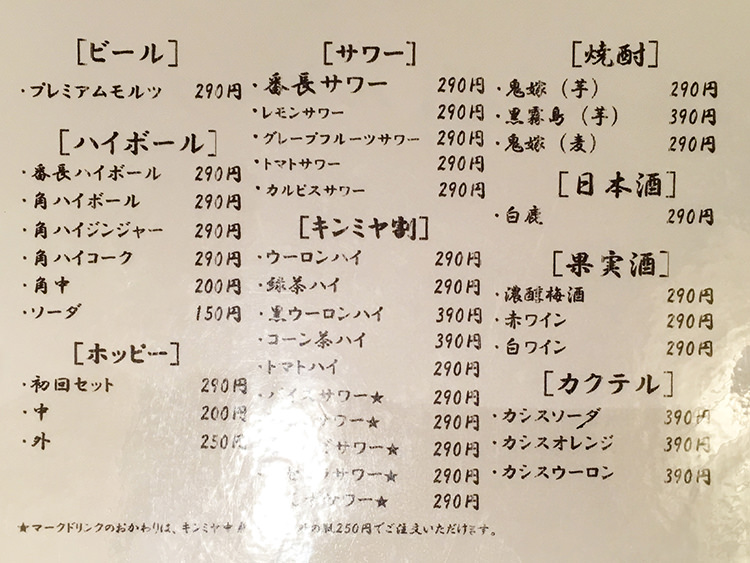 [ビール]
・プレミアムモルツ 290円
[ハイボール]
・番長ハイボール 290円
・角ハイボール 290円
・角ハイジンジャー 290円
・角ハイコーク 290円
・角中 200円
・ソーダ 150円
[ホッピー]
・初回セット 290円
・中 200円
・外 250円
[サワー]
・番長サワー 290円
・レモンサワー 290円
・グレープフルーツサワー 290円
・トマトサワー 290円
・カルピスサワー 290円
[キンミヤ割]
・ウーロンハイ 290円
・緑茶ハイ 290円
・黒ウーロンハイ 390円
・コーン茶ハイ 390円
・トマトハイ 290円
・バイスサワー★ 290円
サワー★ 290円
サワー★ 290円
サワー★ 290円
サワー★ 290円
[焼酎]
・鬼嫁(芋) 290円
・黒霧島(芋) 390円
・鬼嫁(麦) 290円
[日本酒]
・白鹿 290円
[果実酒]
・濃醇梅酒 290円
・赤ワイン 290円
・白ワイン 290円
[カクテル]
・カシスソーダ 390円
・カシスオレンジ 390円
・カシスウーロン 390円
★マークドリンクのおかわりは、キンミヤ中 外の瓶250円でご注文いただけます。